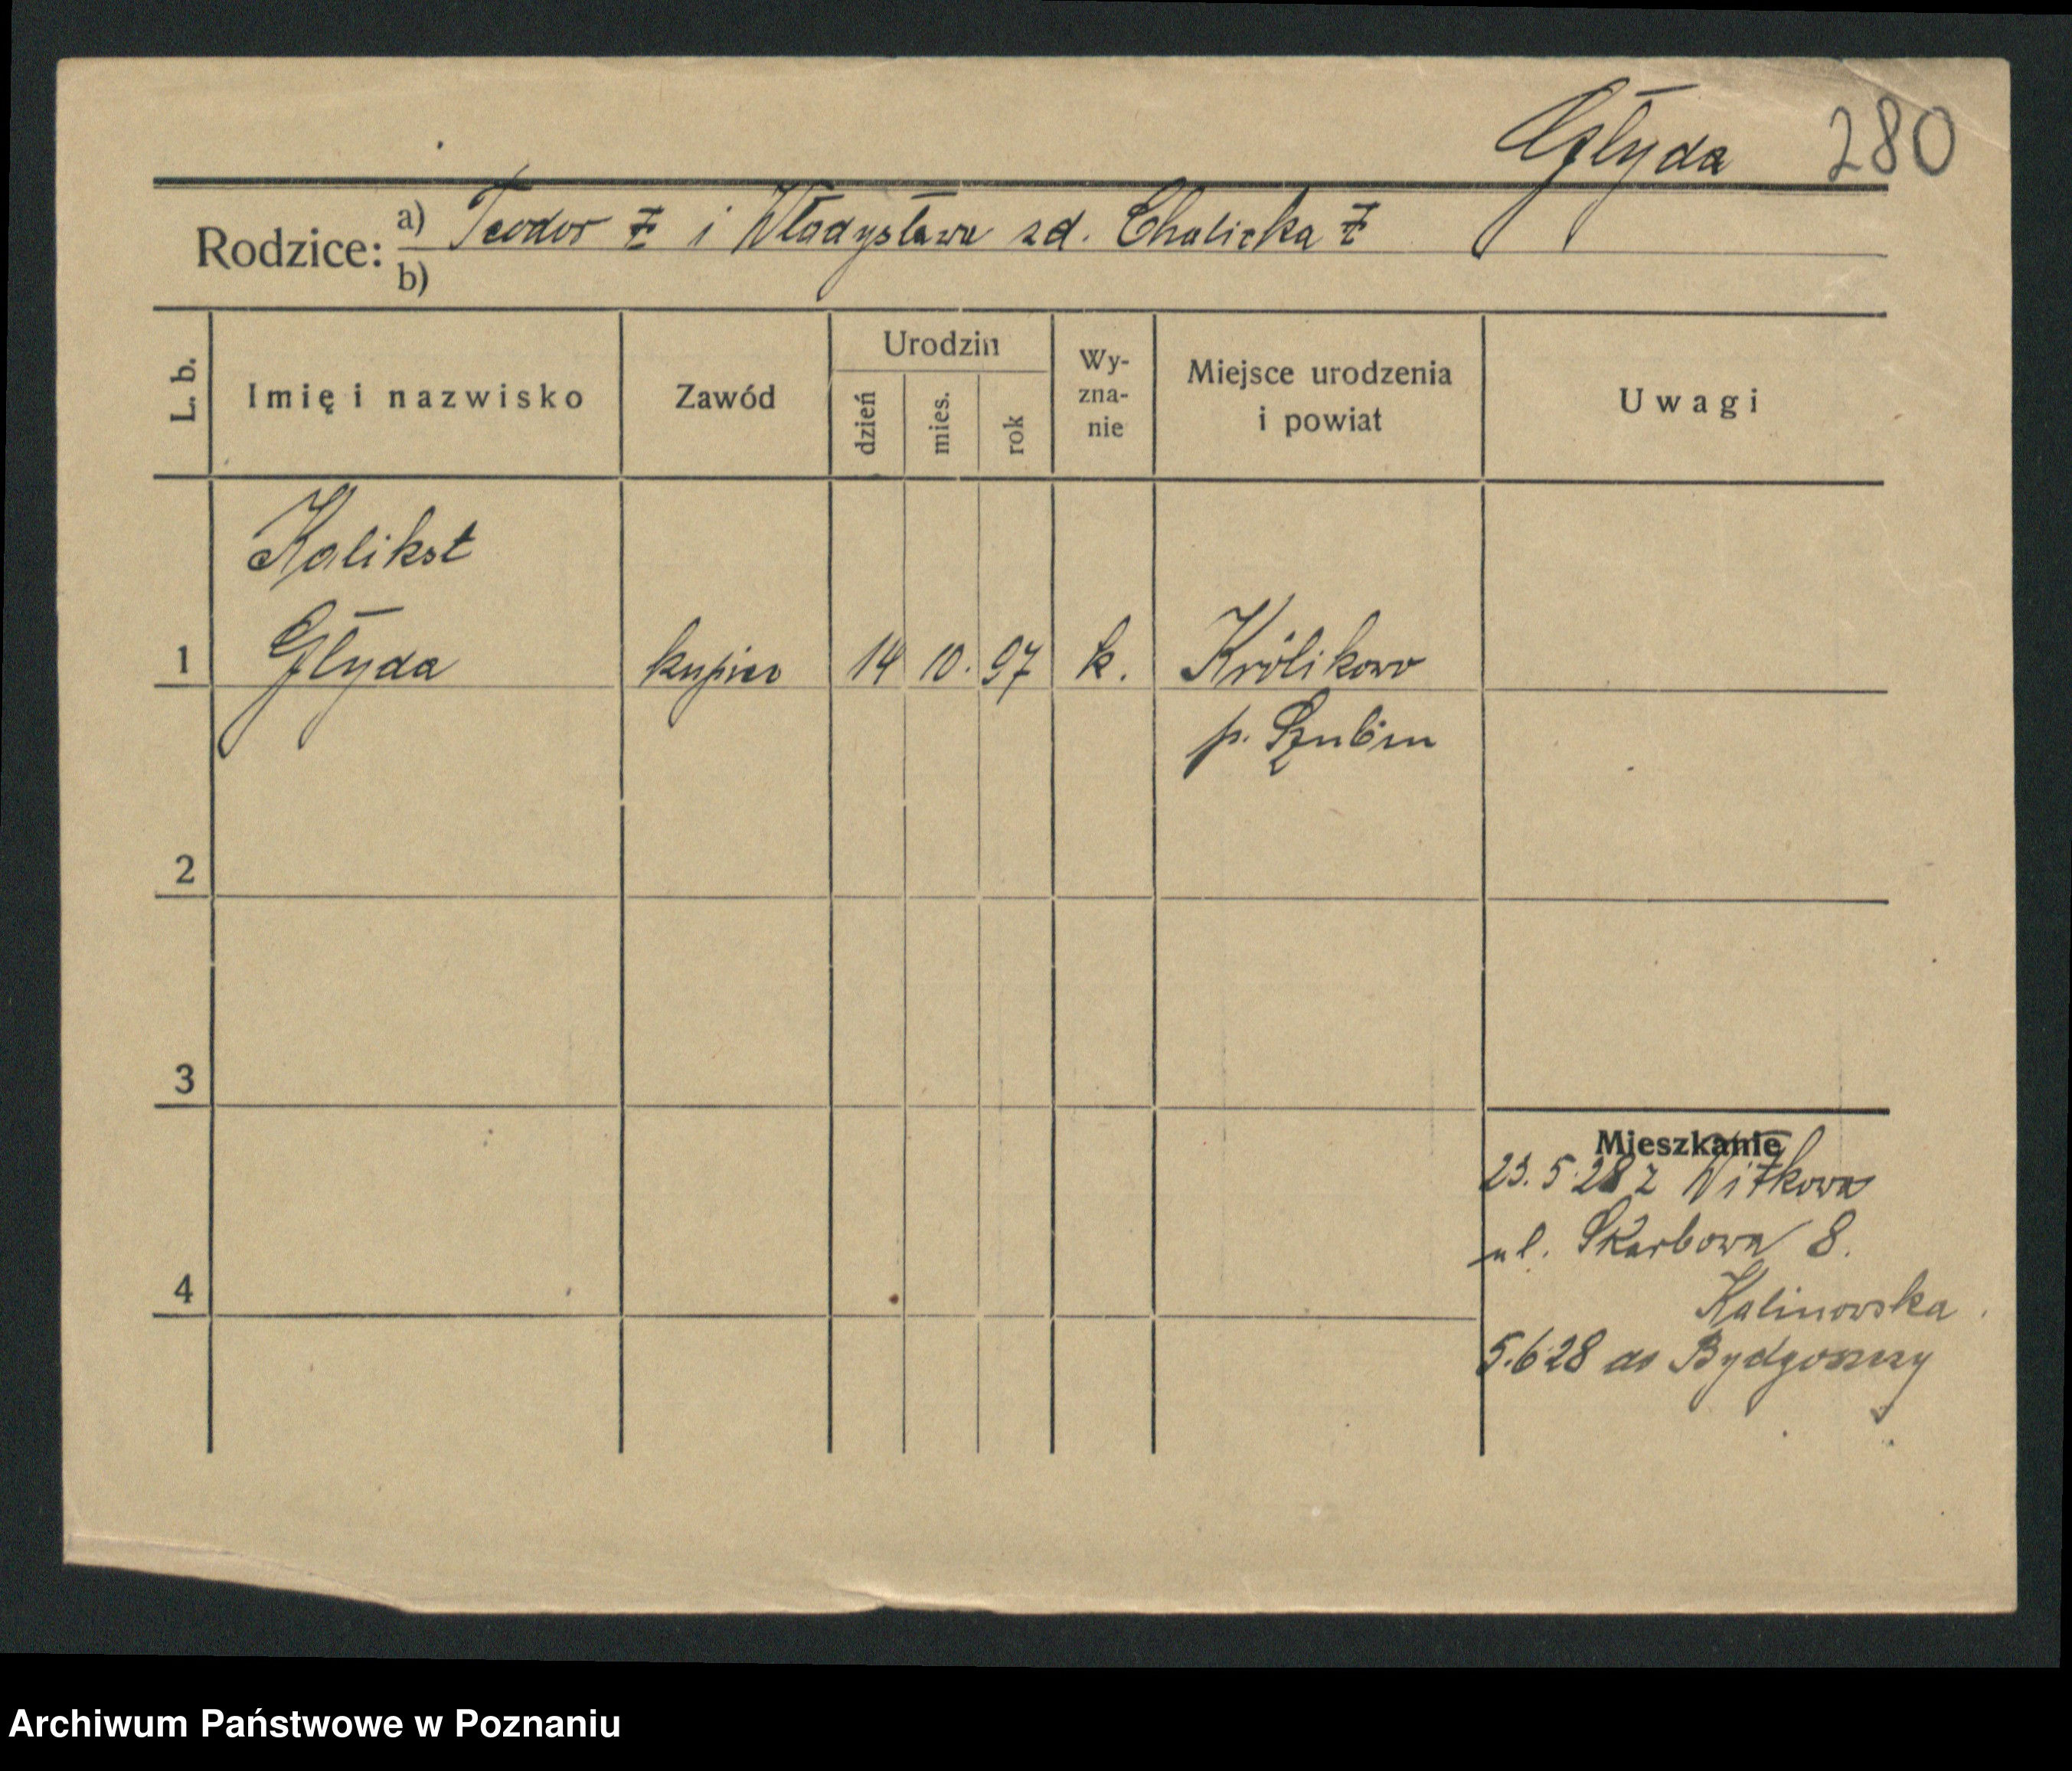 Głyda 280
Rodzice: a) Teodor Ƶ i Władysława zd. Chalicka Ƶ
b)
L. b. Imię i nazwisko Zawód Urodzin dzień mies. rok Wy-zna-nie Miejsce urodzenia i powiat Uwagi
Kalikst
1 Głyda kupiec 14 10. 97 k. Królikowo
p. Szubin
2
3
Mieszkanie
23. 5 28 z Witkowa
ul. Skarbowa 8.
4
Kalinowska
5.6 28 do Bydgoszczy
Archiwum Państwowe w Poznaniu